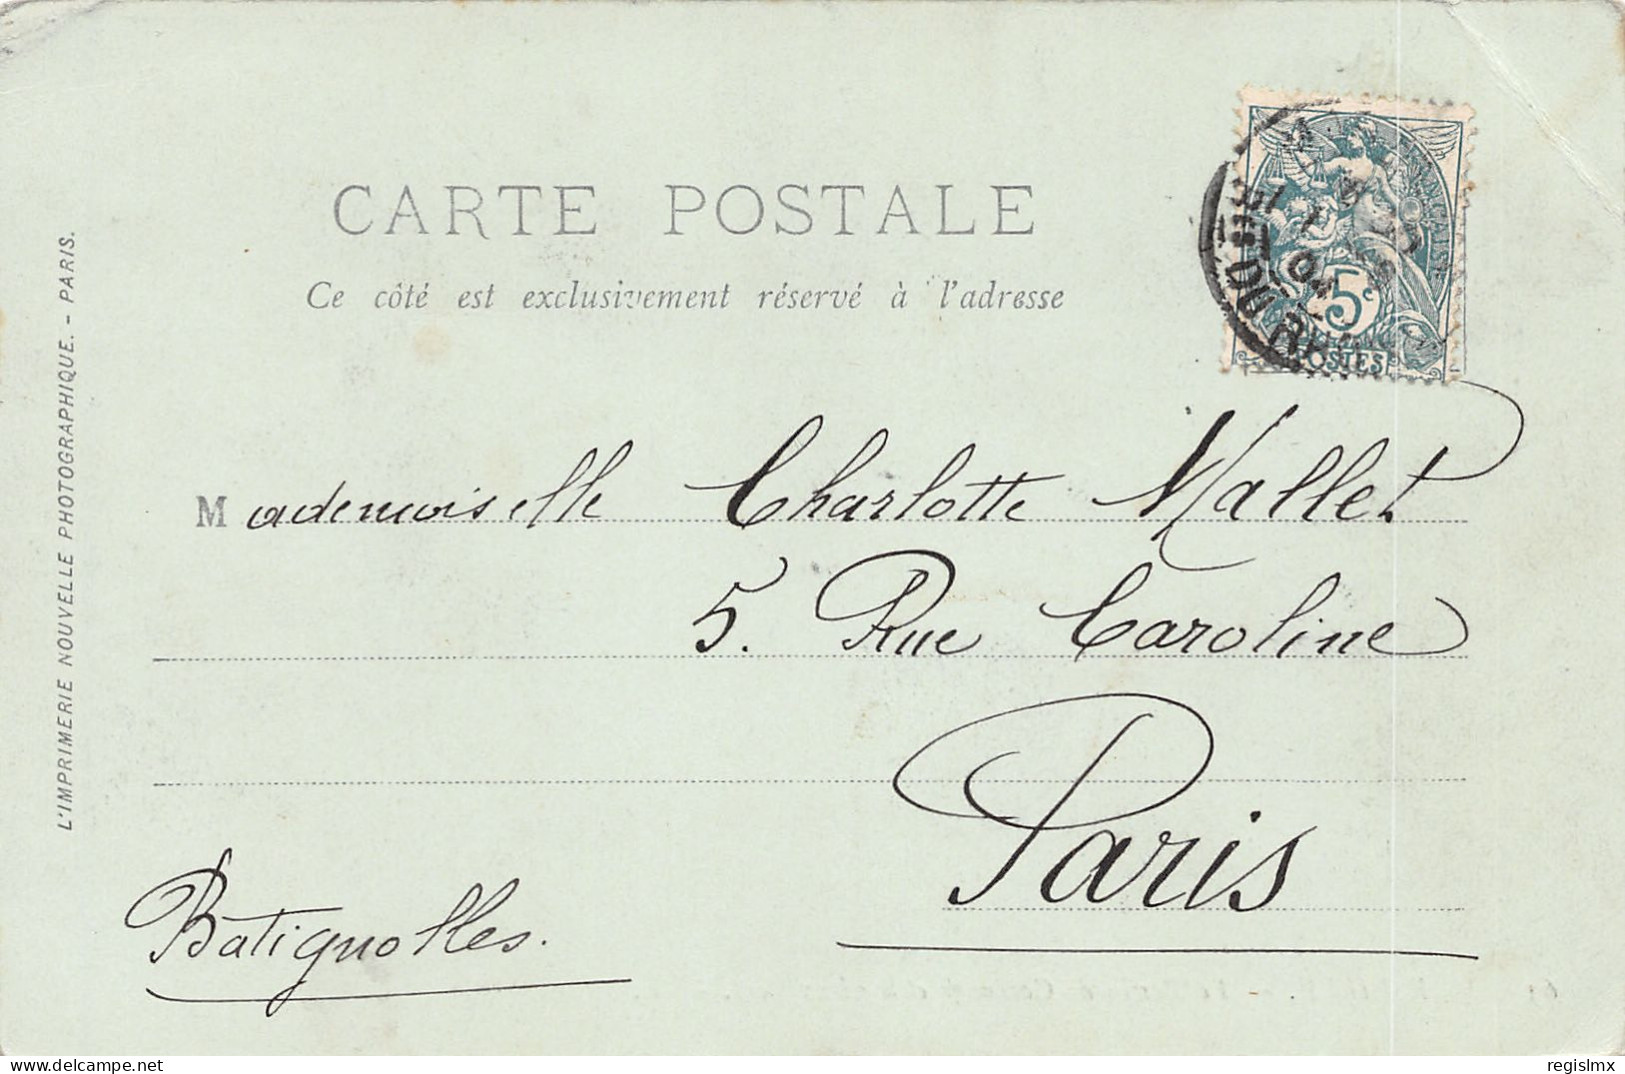 CARTE POSTALE
Ce côté est exclusivement réservé à l'adresse
5c
POSTES
Mademoiselle Charlotte Mallet
5. Rue Caroline
Paris
Batignolles.
L'IMPRIMERIE NOUVELLE PHOTOGRAPHIQUE. - PARIS.
delcampe.net
regislmx